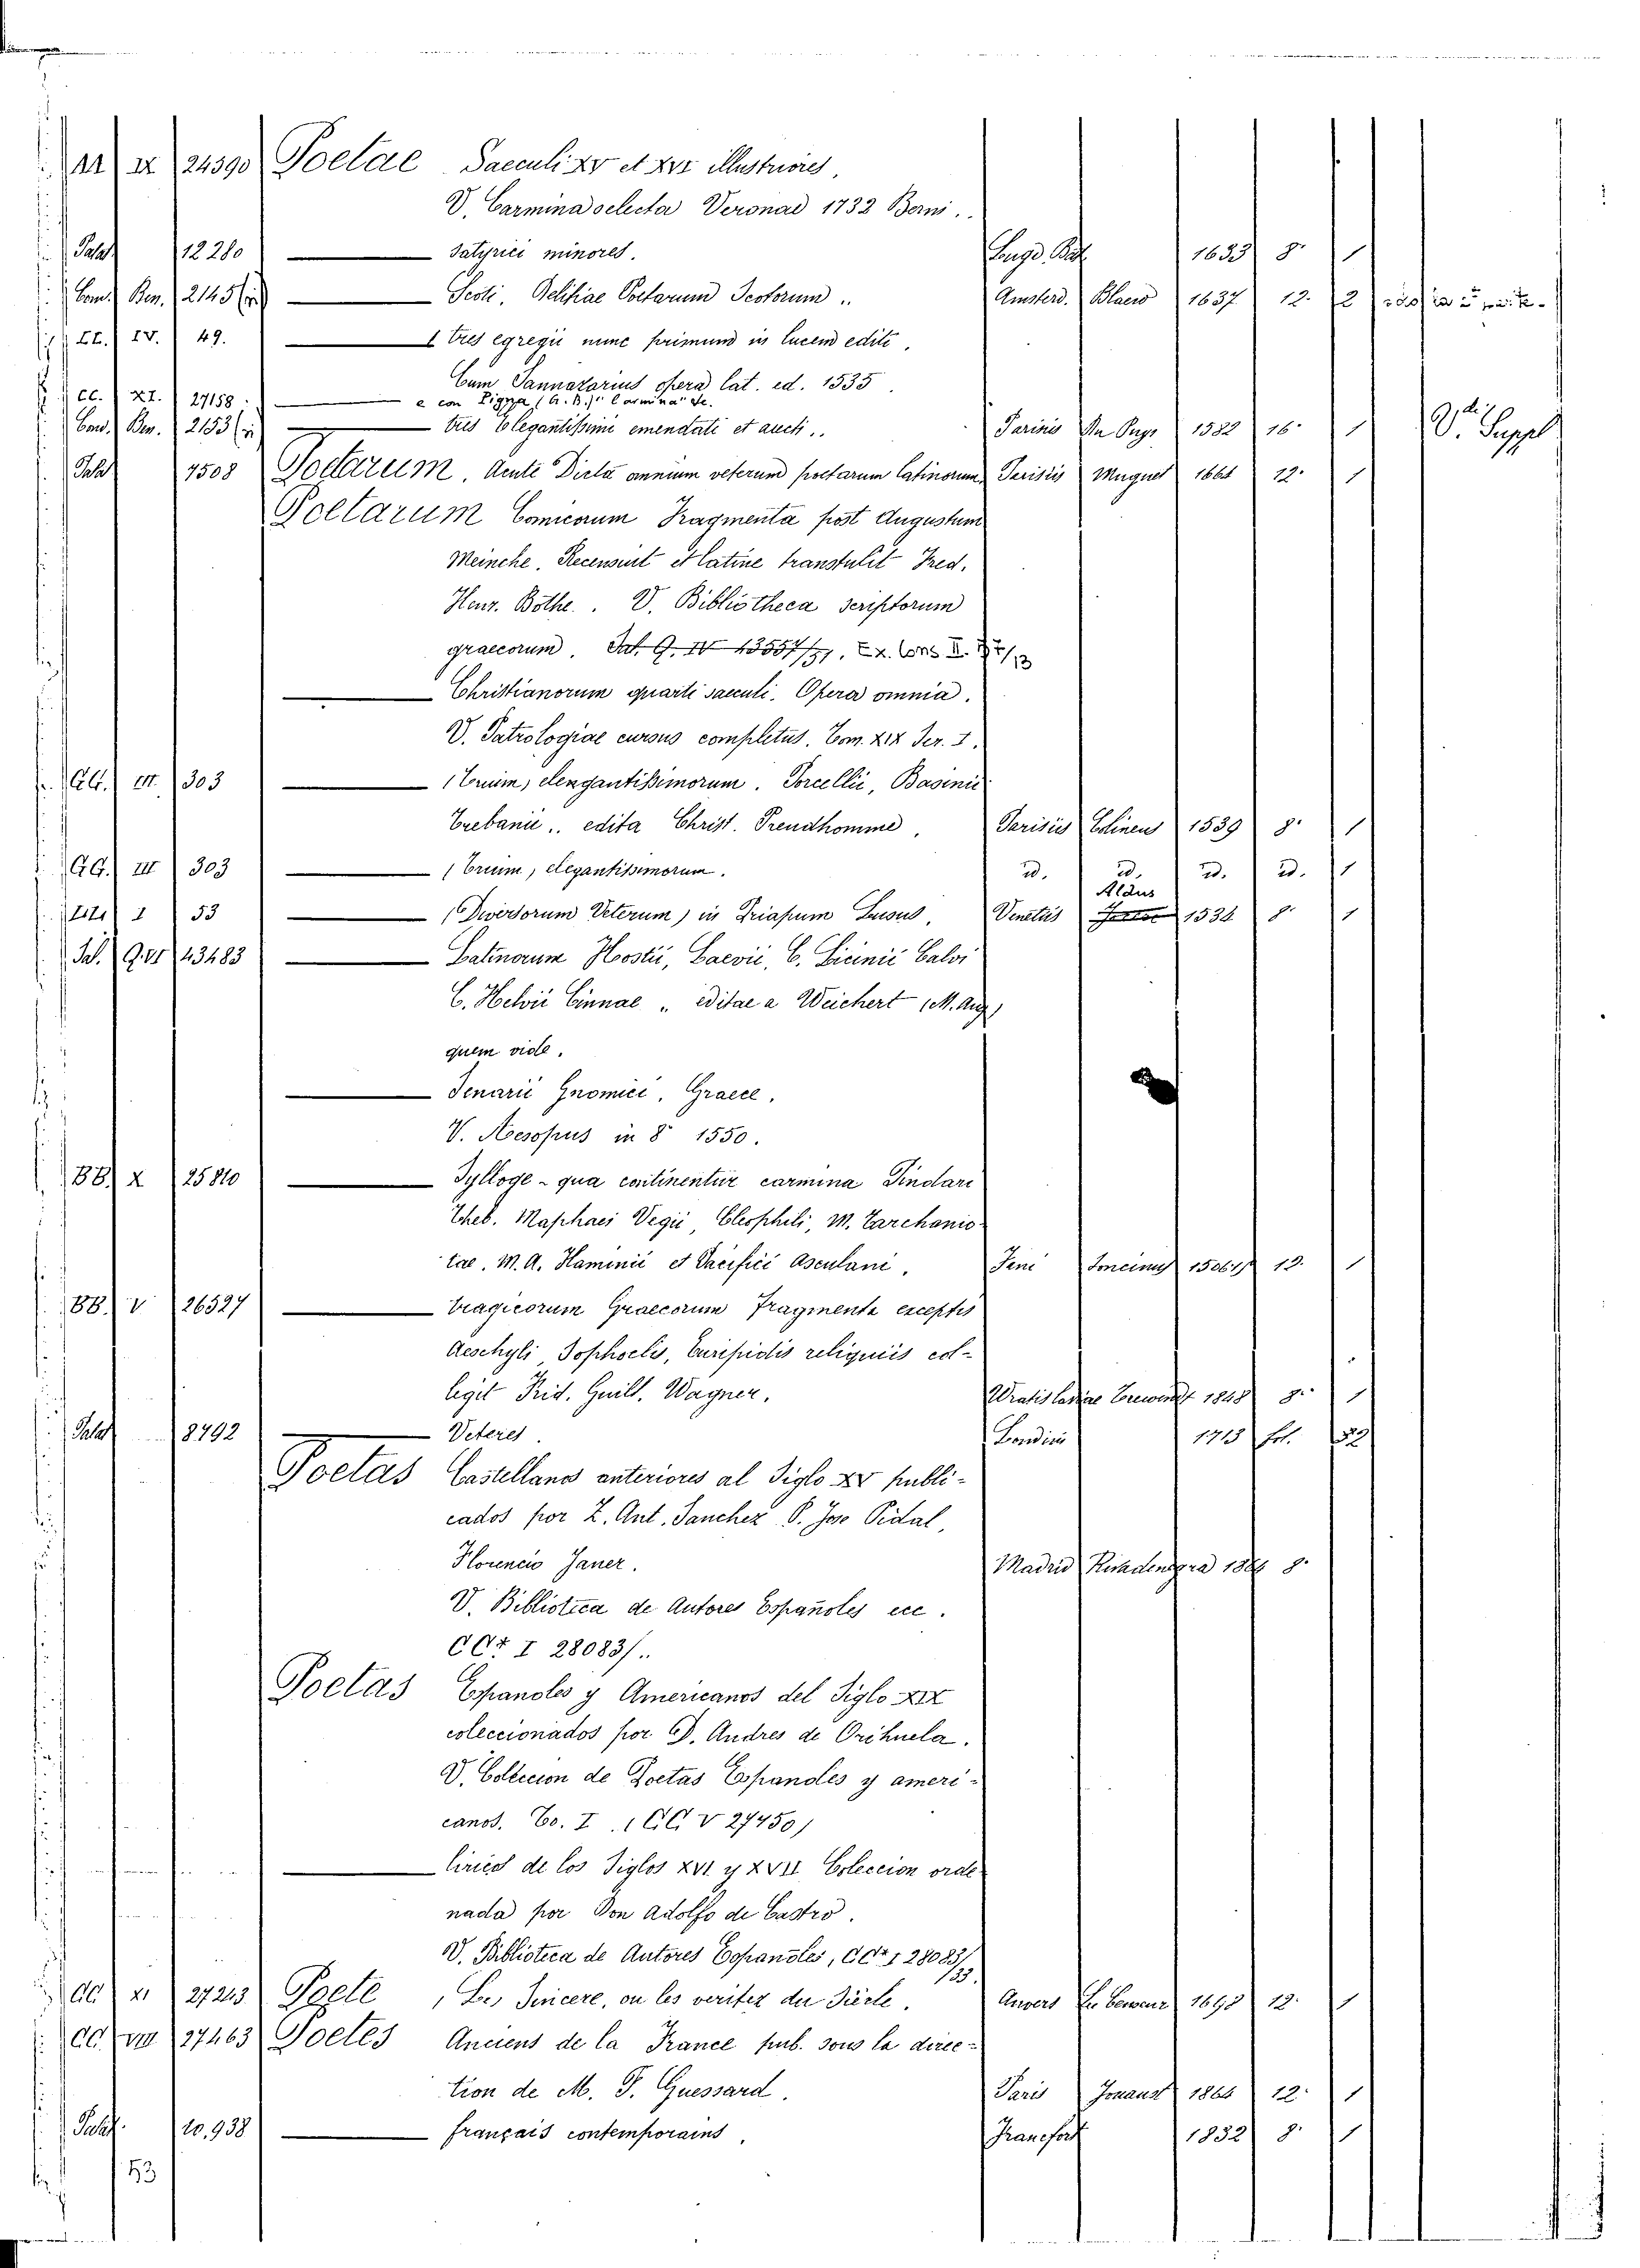 24390 Poetae Saeculi XV et XVI illustriores,
V. Carmina selecta Veronae 1732 Berni.
Palat 12280 Satyrici minores. Lugd. Bat. 1633 8° 1
Com. Ben. 2145 Scoti. Delitiae Poetarum Scotorum .. Amsterd. Blaew 1637 12. 2
LL. IV. 49. tres egregii nunc primum in lucem editi.
Cum Sannazarius opera lat. ed. 1535
CC. XI. 27158 e con Pigna (G. B.) "Carmina" &c.
Com. Ben. 2153 tres elegantissimi emendati et aucti .. Parisiis Du Puys 1582 16° 1 V. Suppl
Palat 7508 Poetarum. Acute Dicta omnium veterum poetarum latinorum Parisiis Muguet 1664 12° 1
Poetarum Comicorum Fragmenta post Augustum
Meineke. Recensuit et latine transtulit Fred.
Henr. Bothe. V. Bibliotheca scriptorum
graecorum. Sal. G. IV 13557/51.
Christianorum quarti saeculi. Opera omnia.
V. Patrologiae cursus completus. Tom. XIX Ser. I.
GG. III. 303 (Trium) elengantissimorum. Porcellii, Basinii
Trebanii .. edita Christ. Preudhomme. Parisiis Colineus 1539 8° 1
GG. III 303 (Trium) elegantissimorum. id. id. id. id. 1
Aldus
I 53 (Diversorum Veterum) in Priapum Lusus, Venetiis 1534 8° 1
Sal. G. VI 43483 Latinorum Hostii, Laevii, C. Licinii Calvi
C. Helvii Cinnae .. editae a Weichert (M. Aug)
quem vide.
Senarii Gnomici. Graece.
V. Aesopus in 8° 1550.
BB. X 25810 Sylloge - qua continentur carmina Pindari
Theb. Maphaei Vegii, Cleophili, M. Tarchanio-
tae, M. A. Flaminii et Pacifici Asculani. Fani Soncinus 12. 1
BB. V 26527 tragicorum Graecorum Fragmenta exceptis
Aeschyli, Sophoclis, Euripidis reliquiis col-
legit Frid. Guill. Wagner. Wratislaviae Trewendt 1848 8° 1
Palat 8792 Veteres. Londini 1713 fol. 2
Poetas Castellanos anteriores al Siglo XV publi-
cados por Z. Ant. Sanchez P. Jose Pidal,
Florencio Janer. Madrid Rivadeneyra 1864 8°
V. Biblioteca de Autores Españoles ecc.
CC* I 28083/..
Poetas Españoles y Americanos del Siglo XIX
coleccionados por D. Andres de Orihuela.
V. Colecion de Poetas Españoles y ameri-
canos. To. I. (CC V 27450)
lirics de los Siglos XVI y XVII Coleccion orde-
nada por Don Adolfo de Castro.
V. Biblioteca de Autores Españoles, CC* I 28083/
/33.
CC XI 27243 Poete, Le, Sincere, ou les veritez du Siecle. Anvers 1698 12° 1
CC. VIII 27463 Poetes Anciens de la France pub. sous la direc-
tion de M. F. Guessard. Paris Jouaust 12° 1
Palat. 10,938 français contemporains. Francfort 1832 8° 1
53